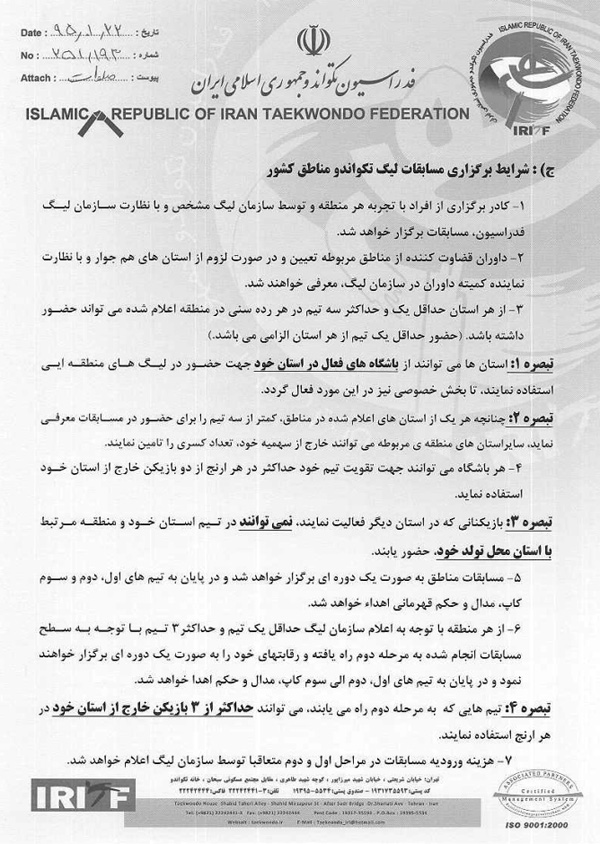 Date : ۹۵/۰۱/۲۲ : تاریخ
No : ۲۵۱/۱۹۳ : شماره
Attach : : پیوست
ISLAMIC REPUBLIC OF IRAN TAEKWONDO FEDERATION
IRITF
فدراسیون تکواندو جمهوری اسلامی ایران
ISLAMIC REPUBLIC OF IRAN TAEKWONDO FEDERATION
ج) : شرایط برگزاری مسابقات لیگ تکواندو مناطق کشور
۱- کادر برگزاری از افراد با تجربه هر منطقه و توسط سازمان لیگ مشخص و با نظارت سازمان لیگ
فدراسیون، مسابقات برگزار خواهد شد.
۲- داوران قضاوت کننده از مناطق مربوطه تعیین و در صورت لزوم از استان های هم جوار و با نظارت
نماینده کمیته داوران در سازمان لیگ، معرفی خواهند شد.
۳- از هر استان حداقل یک و حداکثر سه تیم در هر رده سنی در منطقه اعلام شده می تواند حضور
داشته باشد. (حضور حداقل یک تیم از هر استان الزامی می باشد.)
تبصره ۱: استان ها می توانند از باشگاه های فعال در استان خود جهت حضور در لیگ های منطقه ایی
استفاده نمایند، تا بخش خصوصی نیز در این مورد فعال گردد.
تبصره ۲: چنانچه هر یک از استان های اعلام شده در مناطق، کمتر از سه تیم را برای حضور در مسابقات معرفی
نماید، سایراستان های منطقه ی مربوطه می توانند خارج از سهمیه خود، تعداد کسری را تامین نمایند.
۴- هر باشگاه می توانند جهت تقویت تیم خود حداکثر در هر ارنج از دو بازیکن خارج از استان خود
استفاده نماید.
تبصره ۳: بازیکنانی که در استان دیگر فعالیت نمایند، نمی توانند در تیم استان خود و منطقه مرتبط
با استان محل تولد خود، حضور یابند.
۵- مسابقات مناطق به صورت یک دوره ای برگزار خواهد شد و در پایان به تیم های اول، دوم و سوم
کاپ، مدال و حکم قهرمانی اهداء خواهد شد.
۶- از هر منطقه با توجه به اعلام سازمان لیگ حداقل یک تیم و حداکثر۳ تیم با توجه به سطح
مسابقات انجام شده به مرحله دوم راه یافته و رقابتهای خود را به صورت یک دوره ای برگزار خواهند
نمود و در پایان به تیم های اول، دوم الی سوم کاپ، مدال و حکم اهدا خواهد شد.
تبصره ۴: تیم هایی که به مرحله دوم راه می یابند، می توانند حداکثر از ۳ بازیکن خارج از استان خود در
هر ارنج استفاده نمایند.
۷- هزینه ورودیه مسابقات در مراحل اول و دوم متعاقبا توسط سازمان لیگ اعلام خواهد شد.
IRITF
تهران: خیابان شریعتی ، خیابان شهید میرزاپور ، کوچه شهید طاهری ، مقابل مجتمع مسکونی سبحان ، خانه تکواندو
کد پستی: ۱۹۳۱۷۳۵۵۹۳ - صندوق پستی: ۵۵۳۴-۱۹۳۹۵ تلفن: ۳-۲۲۲۴۲۴۴۱
ASSOCIATED PARTNERS
Certified
Management System
ISO 9001:2000